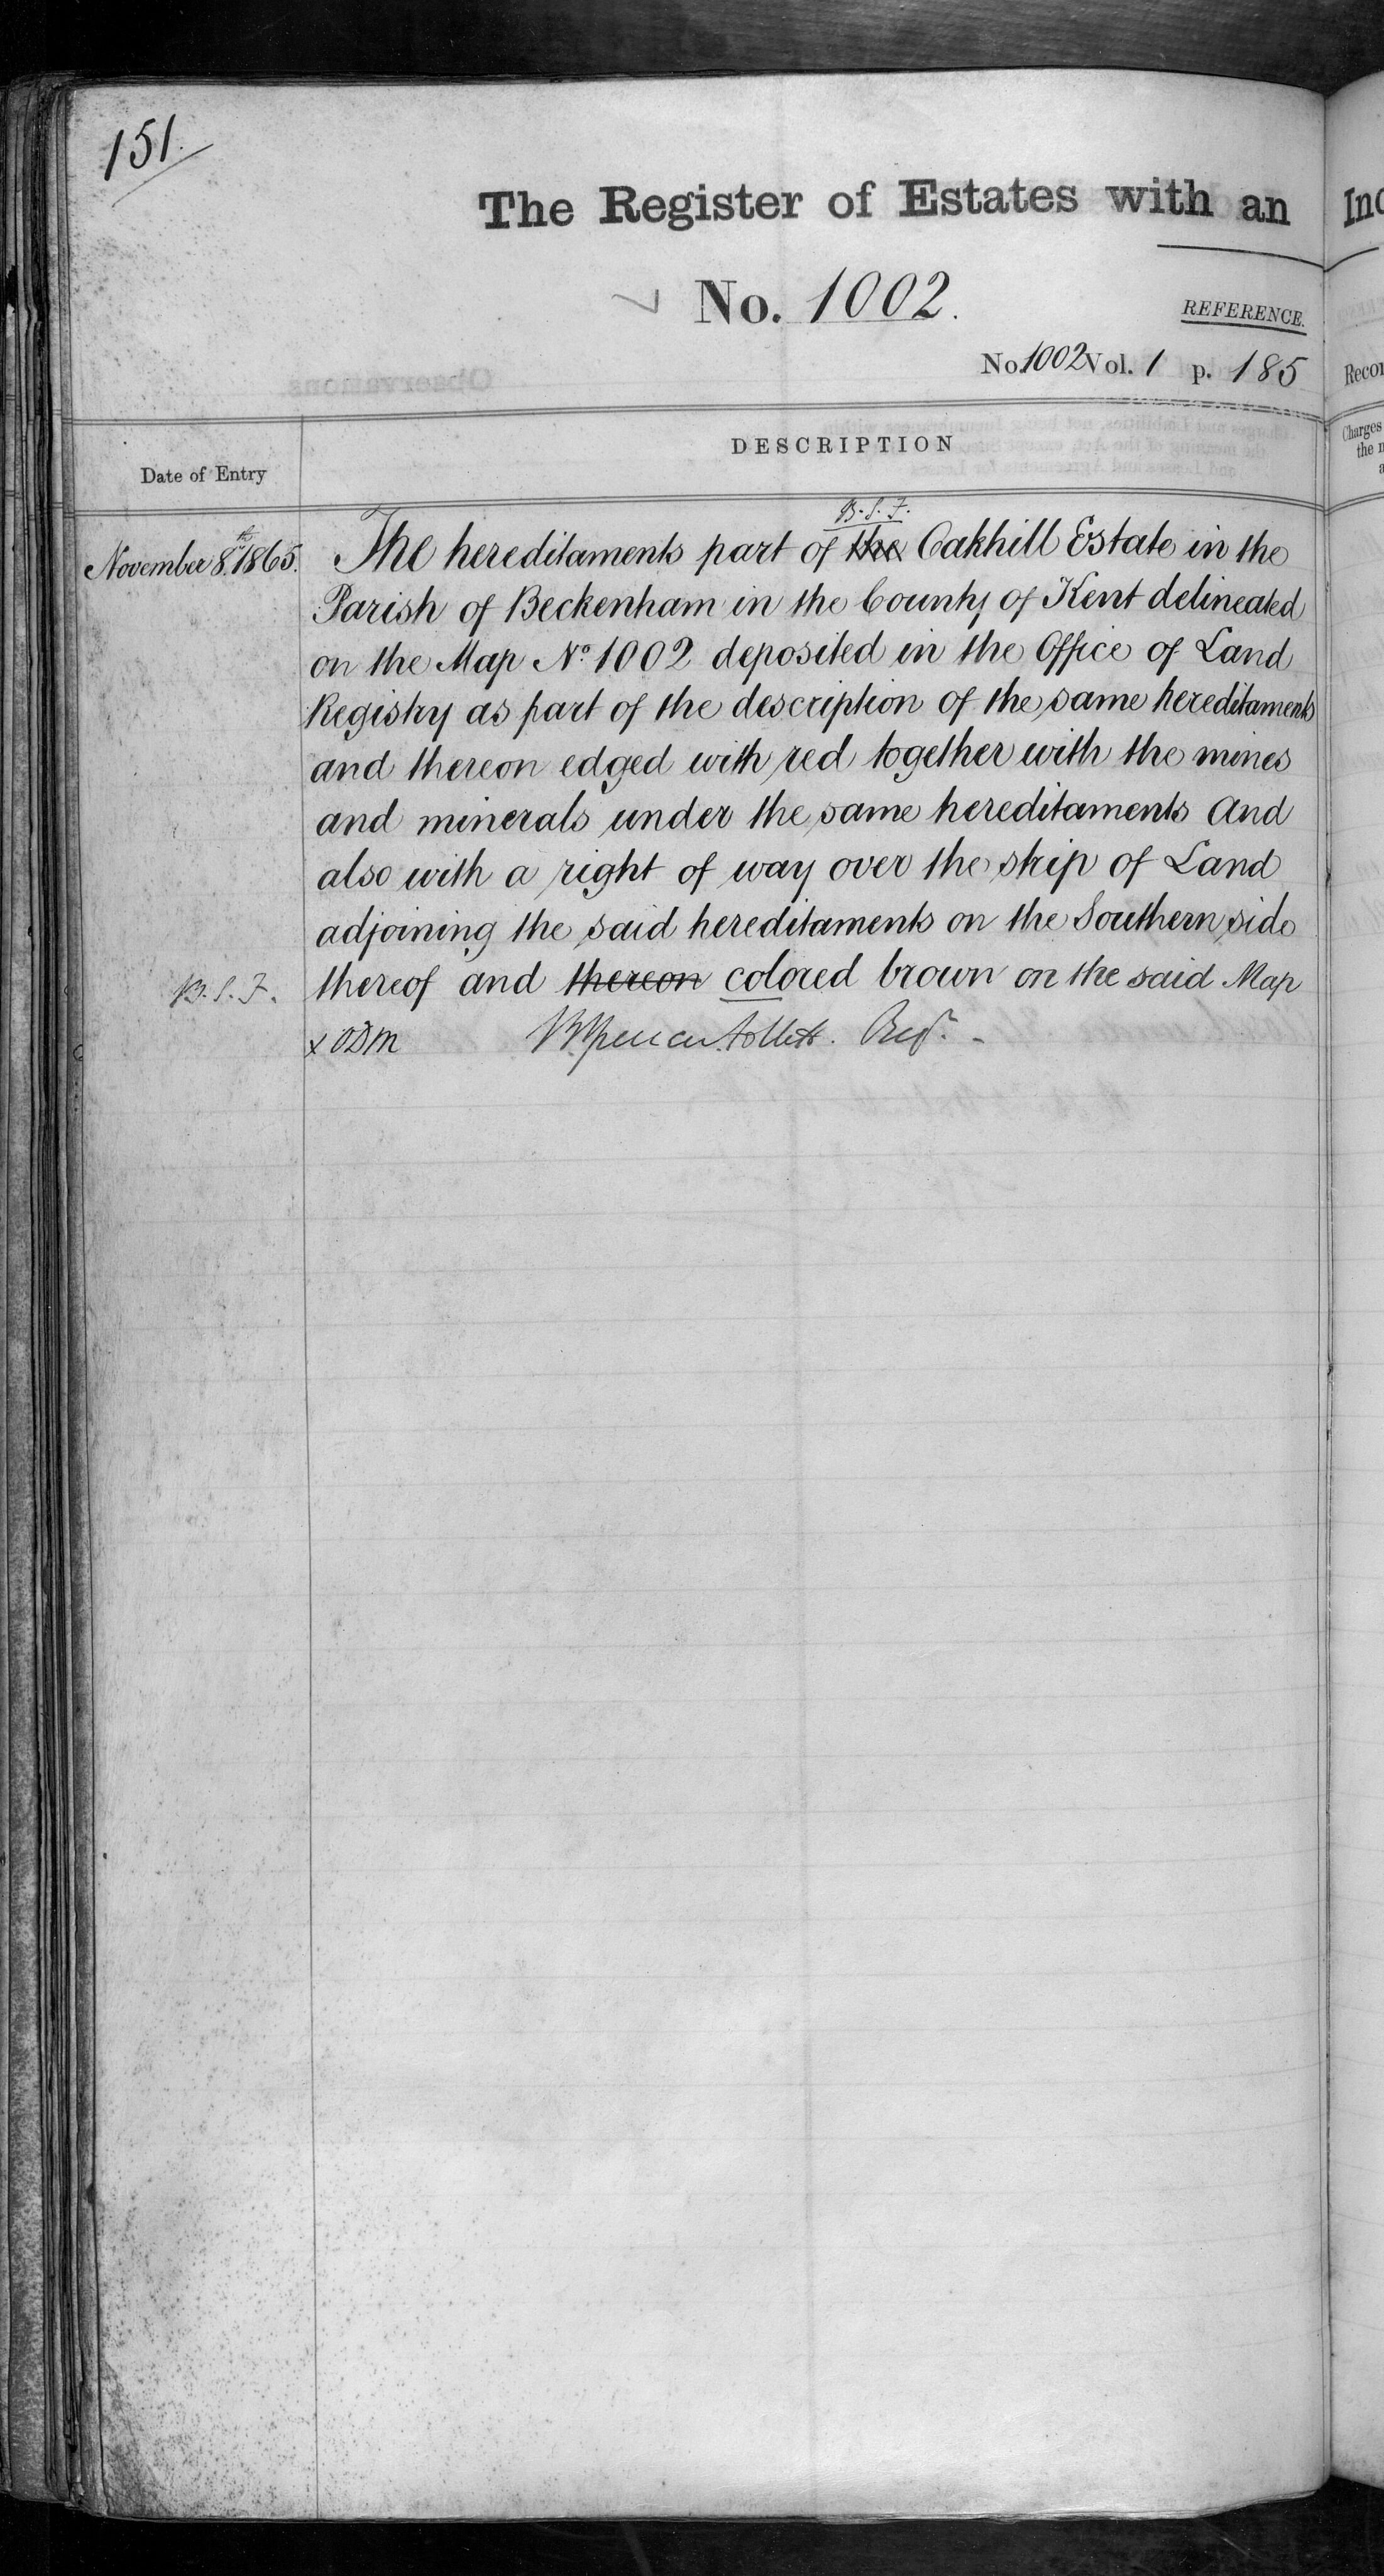 151.
The Register of Estates with an
No. 1002.
REFERENCE.
No. 1002 Vol. 1 p. 185
Date of Entry
DESCRIPTION
B. S. F.
November 8th 1865.
The hereditaments part of the Oakhill Estate in the
Parish of Beckenham in the County of Kent delineated
on the Map No 1002 deposited in the Office of Land
Registry as part of the description of the same hereditaments
and thereon edged with red together with the mines
and minerals under the same hereditaments And
also with a right of way over the strip of Land
adjoining the said hereditaments on the Southern side
B. S. F.
thereof and thereon colored brown on the said Map
x ODM
B Spencer Follett. Regr.
Inc
Recor
Charges
the m
a